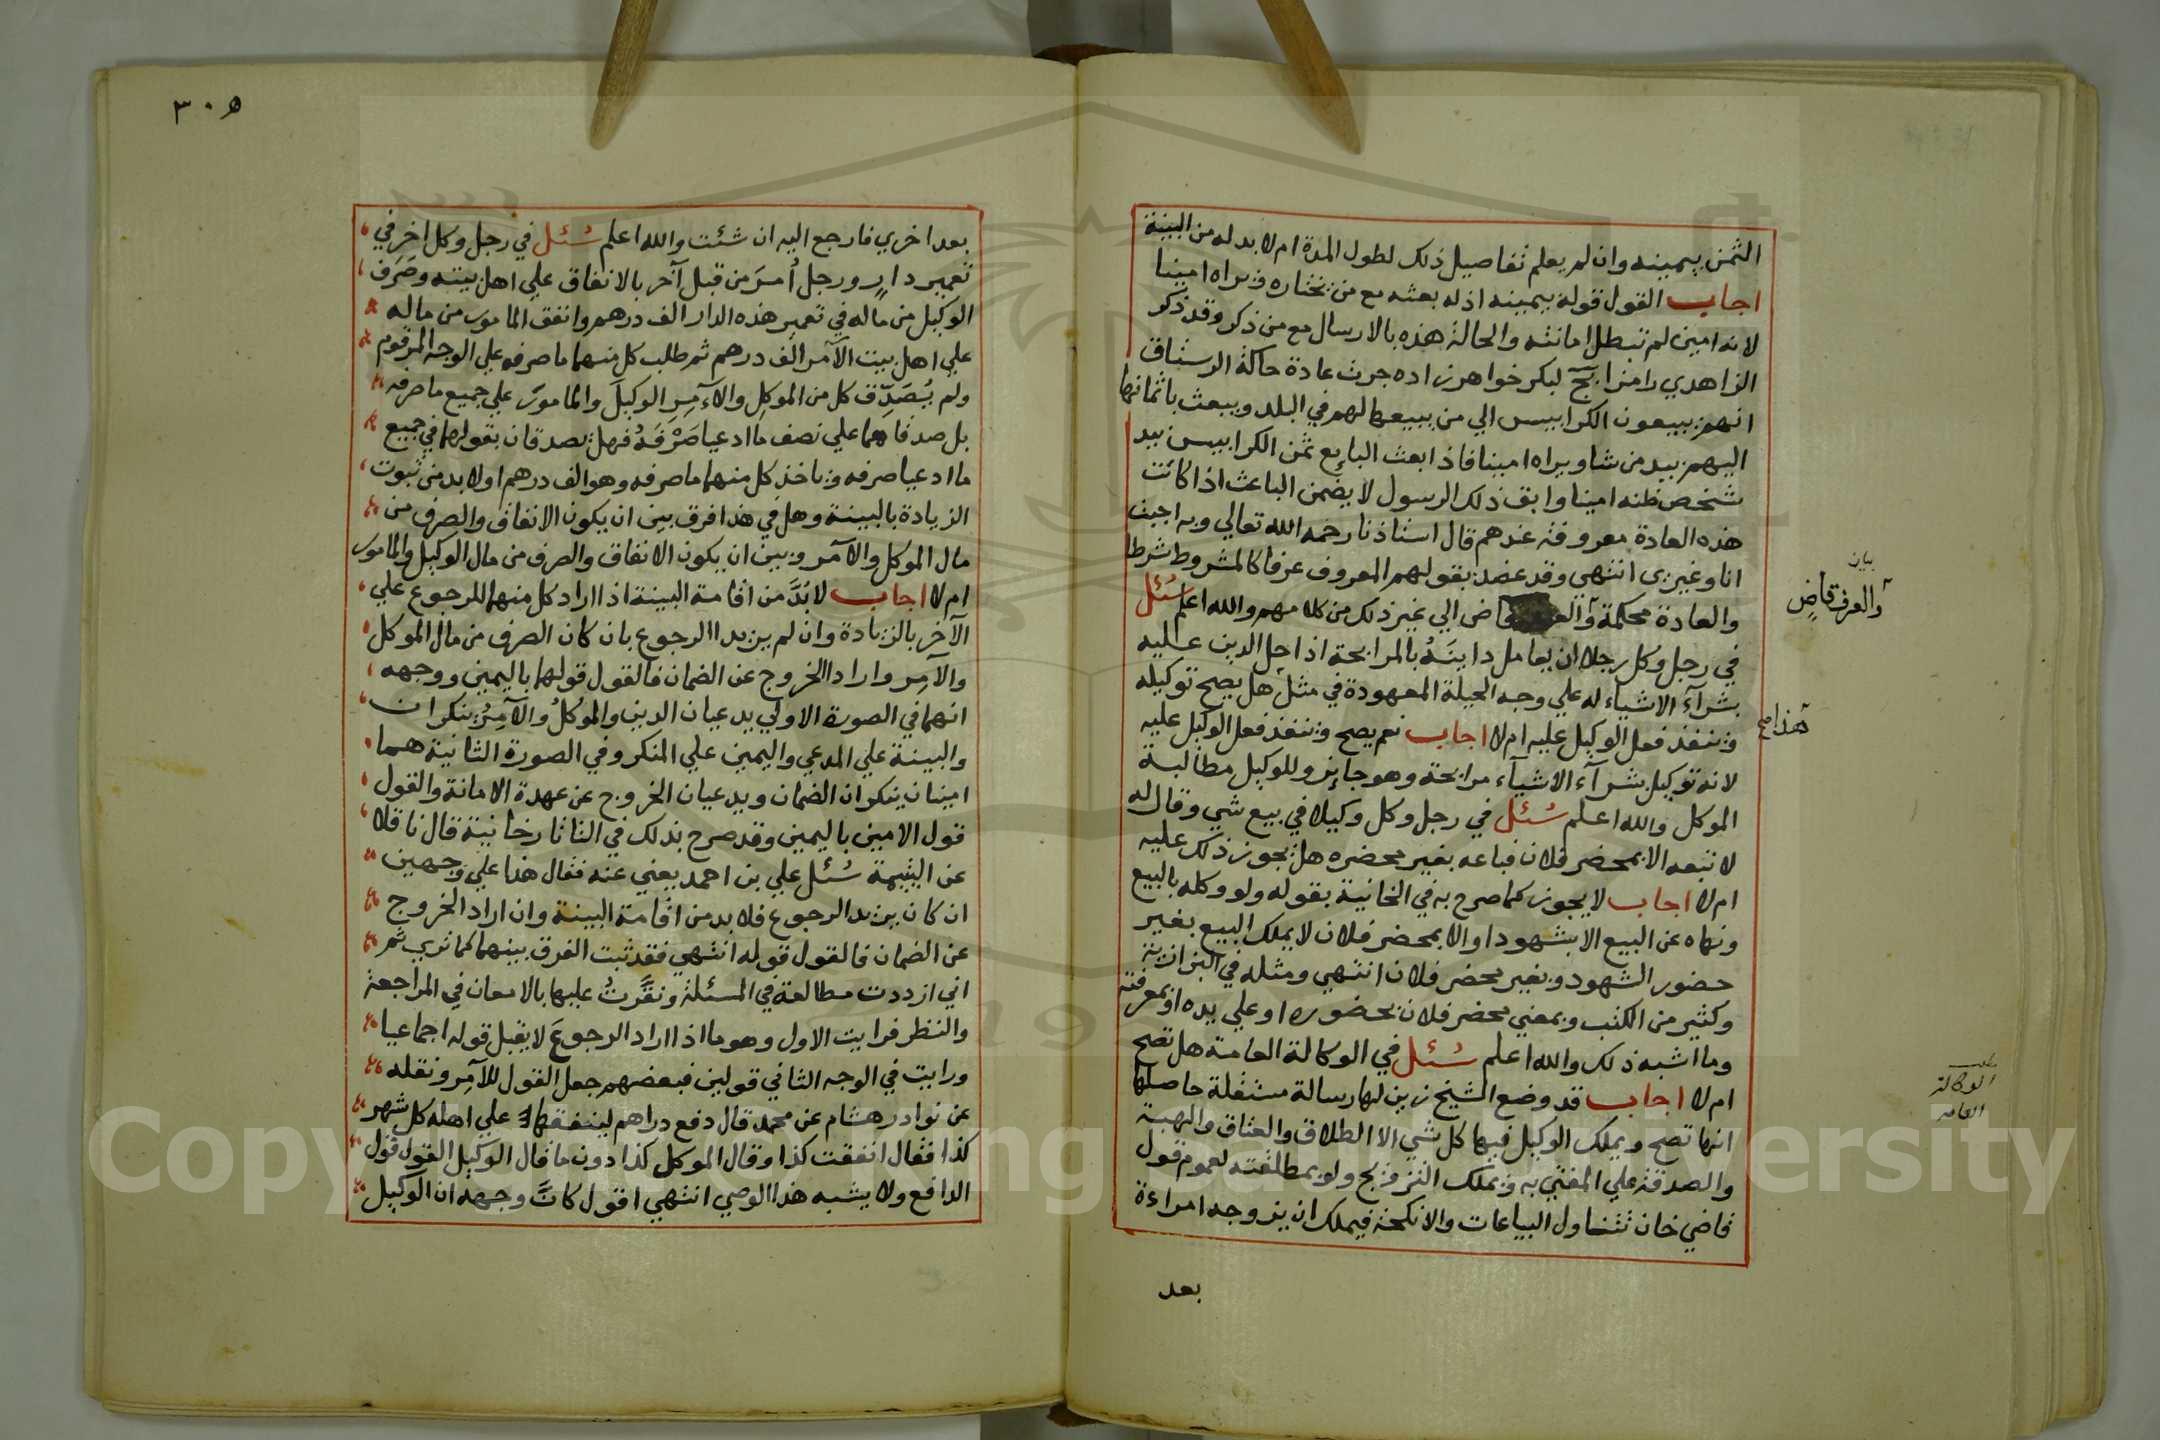 الثمن بيمينه وان لم يعلم تفاصيل ذلك لطول المدة ام لا بد له من البينة
اجاب القول قوله بيمينه اذ له بعثه مع من يختاره ويراه امينا
لانه امين لم تبطل امانته والحالة هذه بالارسال مع من ذكر وقد ذكر
الزاهدي رامزا بخ لبكر خواهر زاده جرت عادة حاكة الرستاق
انهم يبيعون الكرابيس الي من يبيعها لهم في البلد ويبعث باثمانها
اليهم بيد من شا ويراه امينا فاذا بعث البايع ثمن الكرابيس بيد
شخص ظنه امينا وابق ذلك الرسول لا يضمن الباعث اذا كانت
هذه العادة معروفة عندهم قال استاذنا رحمه الله تعالي وبه اجيب
انا وغيري انتهي وقد عضد بقولهم المعروف عرفا كالمشروط شرطا
والعادة محكمة والعرف قاض الي غير ذلك من كلامهم والله اعلم سُئل
في رجل وكل رجلا ان يعامل داينَهُ بالمرابحة اذا حل الدين عليه
بشرآء الاشياء له علي وجه الحيلة المعهودة في مثل هل يصح توكيله
وينفذ فعل الوكيل عليه ام لا اجاب نعم يصح وينفذ فعل الوكيل عليه
لانه توكيل بشرآء الاشيآء مرابحة وهو جايز وللوكيل مطالبة
الموكل والله اعلم سُئل في رجل وكل وكيلا في بيع شي وقال له
لا تبعه الا بمحضر فلان فباعه بغير محضره هل يجوز ذلك عليه
ام لا اجاب لا يجوز كما صرح به في الخانية بقوله ولو وكله بالبيع
ونهاه عن البيع الا بشهود او الا بمحضر فلان لا يملك البيع بغير
حضور الشهود وبغير محضر فلان انتهي ومثله في البزازية
وكثير من الكتب وبمعني محضر فلان بحضوره او علي يده او بمعرفته
وما اشبه ذلك والله اعلم سُئل في الوكالة العامة هل تصح
ام لا اجاب قد وضع الشيخ زين لها رسالة مستقلة حاصلها
انها تصح ويملك الوكيل فيها كل شي الا الطلاق والعتاق والهبة
والصدقة علي المفتي به ويملك التزويج ولو بمطلقته لعموم قول
قاضي خان تتناول البياعات والانكحة فيملك ان يزوجه امراءة
بعد
بيان
والعرف قاضٍ
هذا صح
مطلب
الوكالة
العامه
٣٠٥
بعد اخري فارجع اليه ان شئت والله اعلم سُئل في رجل وكل اخر في
تعمير دارٍ ورجل أُمرَ من قبل آخر بالانفاق علي اهل بيته وصَرَف
الوكيل من ماله في تعمير هذه الدار الف درهم وانفق المامور من ماله
علي اهل بيت الآمر الف درهم ثم طلب كل منهما ما صرفه علي الوجه المرقوم
ولم يُصَدِّق كل من الموكل والآمِر الوكيلَ والمامورَ علي جميع ما صرفه
بل صدقاهما علي نصف ما ادعيا صَرْفَهُ فهل يصدقان بقولهما في جميع
ما ادعيا صرفه وياخذ كل منهما ما صرفه وهو الف درهم او لا بد من ثبوت
الزيادة بالبينة وهل في هذا فرق بين ان يكون الانفاق والصرف من
مال الموكل والآمر وبين ان يكون الانفاق والصرف من مال الوكيل والمامور
ام لا اجاب لا بُدَّ من اقامة البينة اذا اراد كل منهما الرجوع علي
الآخر بالزيادة وان لم يريدا الرجوع بان كان الصرف من مال الموكل
والآمِر وارادا الخروج عن الضمان فالقول قولهما باليمين ووجهه
انهما في الصورة الاولي يدعيان الدين والموكلُ والآمِرُ ينكران
والبينة علي المدعي واليمين علي المنكر وفي الصورة الثانية هما
امينان ينكران الضمان ويدعيان الخروج عن عهدة الامانة والقول
قول الامين باليمين وقد صرح بذلك في التاتارخانية قال ناقلا
عن اليتيمة سُئل علي بن احمد يعني عنه فقال هذا علي وجهين
ان كان يريد الرجوع فلا بد من اقامة البينة وان اراد الخروج
عن الضمان فالقول قوله انتهي فقد ثبت الفرق بينهما كما تري ثم
اني ازددت مطالعة في المسئلة ونقَّرتُ عليها بالامعان في المراجعة
والنظر فرايت الاول وهو ما اذا اراد الرجوعَ لا يقبل قوله اجماعيا
ورايت في الوجه الثاني قولين فبعضهم جعل القول للآمِر ونقله
عن نوادر هشام عن محمد قال دفع دراهم لينفقها علي اهله كل شهر
كذا فقال انفقت كذا وقال الموكل كذا دون ما قال الوكيل القول قول
الدافع ولا يشبه هذا الوصي انتهي اقول كانَّ وجهه ان الوكيل